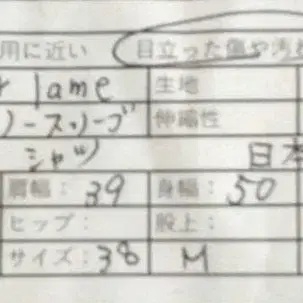 用に近い 目立った傷や汚
lame 生地
ノースリーブ 伸縮性
シャツ 日本
肩幅: 39 身幅: 50
ヒップ: 股上:
サイズ: 38 M